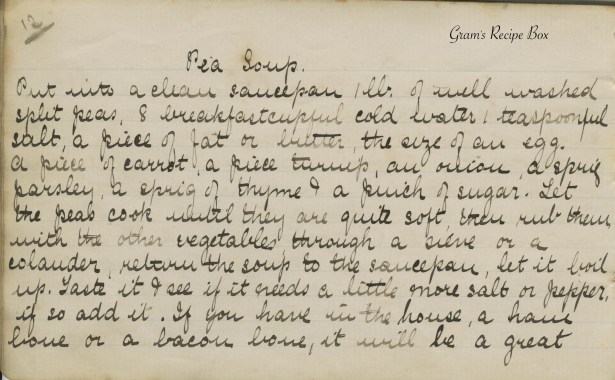 12
Gram's Recipe Box
Pea Soup.
Put into a clean saucepan 1 lb. of well washed
split peas, 8 breakfastcupful cold water 1 teaspoonful
salt, a piece of fat or butter, the size of an egg.
A piece of carrot, a piece turnip, an onion, a sprig
parsley, a sprig of thyme & a pinch of sugar. Let
the peas cook until they are quite soft, then rub them,
with the other vegetables through a sieve or a
colander, return the soup to the saucepan, let it boil
up. Taste it & see if it needs a little more salt or pepper,
if so add it. If you have in the house, a ham
bone or a bacon bone, it will be a great